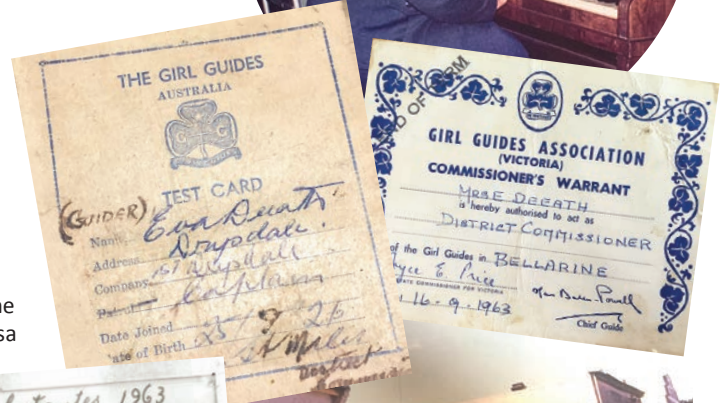 THE GIRL GUIDES
AUSTRALIA
TEST CARD
(GUIDER)
Name Eva Deeath
Address Drysdale.
Company 1st Drysdale
Patrol Captain
Date Joined
Date of Birth 25 7 26
District
END OF TERM
GIRL GUIDES ASSOCIATION
(VICTORIA)
COMMISSIONER'S WARRANT
MRS E DEEATH
is hereby authorised to act as
DISTRICT COMMISSIONER
of the Girl Guides in BELLARINE
E. Price
STATE COMMISSIONER FOR VICTORIA
16.9.1963
Chief Guide
ne
sa
1963